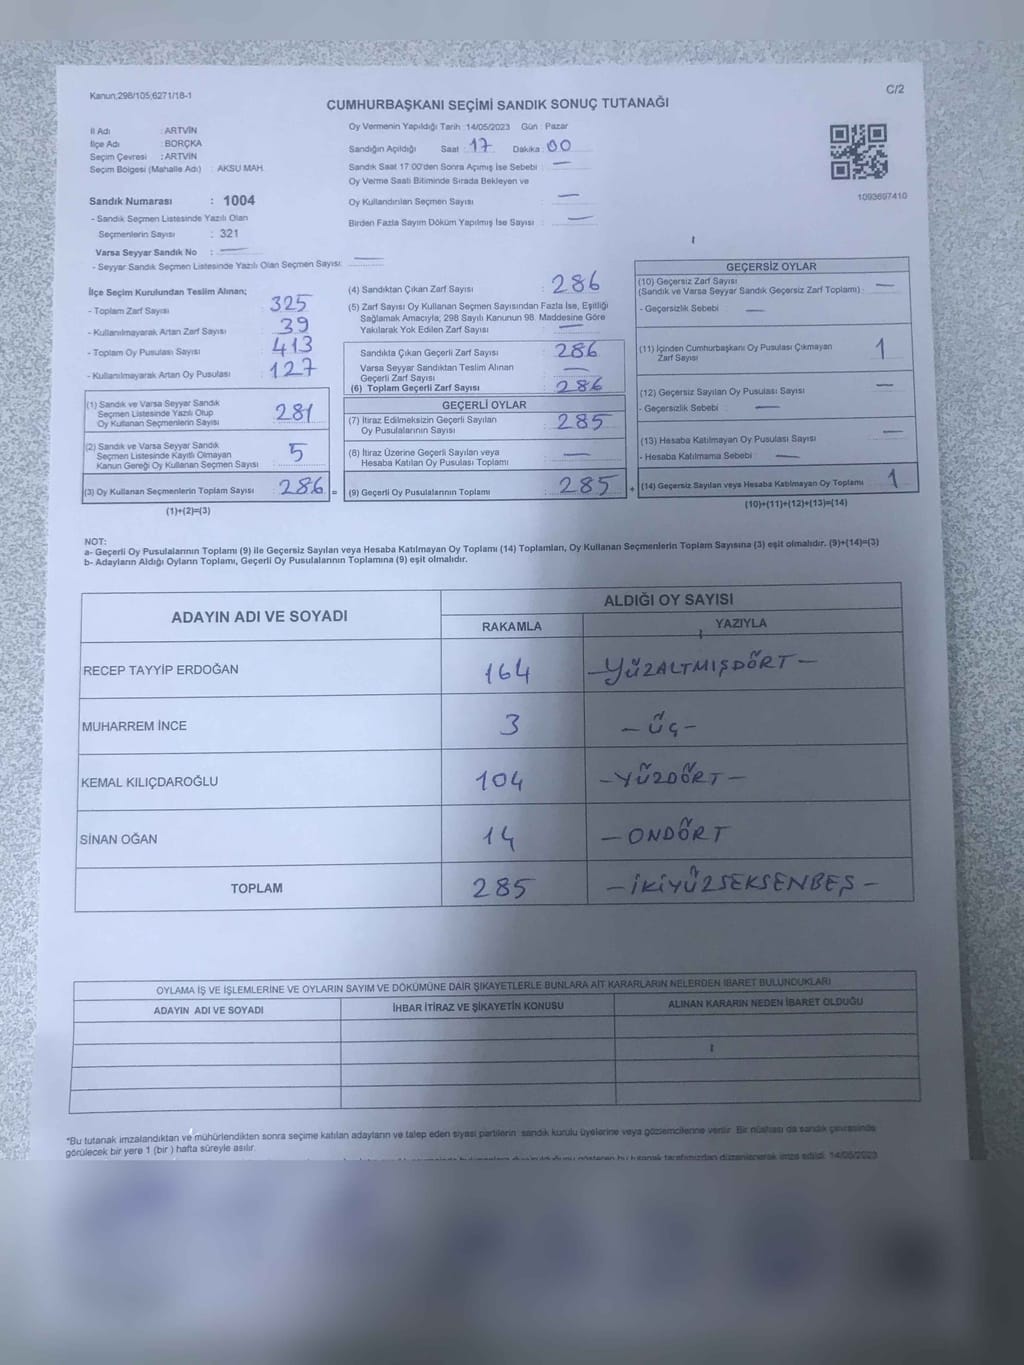 Kanun;298/105;6271/18-1
C/2
CUMHURBAŞKANI SEÇİMİ SANDIK SONUÇ TUTANAĞI
İl Adı : ARTVİN
İlçe Adı : BORÇKA
Seçim Çevresi : ARTVİN
Seçim Bölgesi (Mahalle Adı) : AKSU MAH.
Sandık Numarası : 1004
- Sandık Seçmen Listesinde Yazılı Olan
Seçmenlerin Sayısı : 321
Varsa Seyyar Sandık No : —
- Seyyar Sandık Seçmen Listesinde Yazılı Olan Seçmen Sayısı —
Oy Vermenin Yapıldığı Tarih : 14/05/2023 Gün : Pazar
Sandığın Açıldığı Saat : 17 Dakika : 00
Sandık Saat 17:00'den Sonra Açımış İse Sebebi : —
Oy Verme Saati Bitiminde Sırada Bekleyen ve
Oy Kullandırılan Seçmen Sayısı : —
Birden Fazla Sayım Döküm Yapılmış İse Sayısı : —
1093697410
İlçe Seçim Kurulundan Teslim Alınan;
- Toplam Zarf Sayısı : 325
- Kullanılmayarak Artan Zarf Sayısı : 39
- Toplam Oy Pusulası Sayısı : 413
- Kullanılmayarak Artan Oy Pusulası : 127
(1) Sandık ve Varsa Seyyar Sandık
Seçmen Listesinde Yazılı Olup
Oy Kullanan Seçmenlerin Sayısı : 281
(2) Sandık ve Varsa Seyyar Sandık
Seçmen Listesinde Kayıtlı Olmayan
Kanun Gereği Oy Kullanan Seçmen Sayısı : 5
(3) Oy Kullanan Seçmenlerin Toplam Sayısı : 286 =
(1)+(2)=(3)
(4) Sandıktan Çıkan Zarf Sayısı : 286
(5) Zarf Sayısı Oy Kullanan Seçmen Sayısından Fazla İse, Eşitliği
Sağlamak Amacıyla; 298 Sayılı Kanunun 98. Maddesine Göre
Yakılarak Yok Edilen Zarf Sayısı : —
Sandıkta Çıkan Geçerli Zarf Sayısı : 286
Varsa Seyyar Sandıktan Teslim Alınan
Geçerli Zarf Sayısı : —
(6) Toplam Geçerli Zarf Sayısı : 286
GEÇERLİ OYLAR
(7) İtiraz Edilmeksizin Geçerli Sayılan
Oy Pusulalarının Sayısı : 285
(8) İtiraz Üzerine Geçerli Sayılan veya
Hesaba Katılan Oy Pusulası Toplamı : —
(9) Geçerli Oy Pusulalarının Toplamı : 285 +
GEÇERSİZ OYLAR
(10) Geçersiz Zarf Sayısı
(Sandık ve Varsa Seyyar Sandık Geçersiz Zarf Toplamı) : —
- Geçersizlik Sebebi : —
(11) İçinden Cumhurbaşkanı Oy Pusulası Çıkmayan
Zarf Sayısı 1
(12) Geçersiz Sayılan Oy Pusulası Sayısı —
- Geçersizlik Sebebi : —
(13) Hesaba Katılmayan Oy Pusulası Sayısı —
- Hesaba Katılmama Sebebi : —
(14) Geçersiz Sayılan veya Hesaba Katılmayan Oy Toplamı 1
(10)+(11)+(12)+(13)=(14)
NOT:
a- Geçerli Oy Pusulalarının Toplamı (9) ile Geçersiz Sayılan veya Hesaba Katılmayan Oy Toplamı (14) Toplamları, Oy Kullanan Seçmenlerin Toplam Sayısına (3) eşit olmalıdır. (9)+(14)=(3)
b- Adayların Aldığı Oyların Toplamı, Geçerli Oy Pusulalarının Toplamına (9) eşit olmalıdır.
ADAYIN ADI VE SOYADI ALDIĞI OY SAYISI
RAKAMLA YAZIYLA
RECEP TAYYİP ERDOĞAN 164 – YÜZALTMIŞDÖRT –
MUHARREM İNCE 3 – ÜÇ –
KEMAL KILIÇDAROĞLU 104 – YÜZDÖRT –
SİNAN OĞAN 14 – ONDÖRT
TOPLAM 285 – İKİYÜZSEKSENBEŞ –
OYLAMA İŞ VE İŞLEMLERİNE VE OYLARIN SAYIM VE DÖKÜMÜNE DAİR ŞİKAYETLERLE BUNLARA AİT KARARLARIN NELERDEN İBARET BULUNDUKLARI
ADAYIN ADI VE SOYADI İHBAR İTİRAZ VE ŞİKAYETİN KONUSU ALINAN KARARIN NEDEN İBARET OLDUĞU
*Bu tutanak imzalandıktan ve mühürlendikten sonra seçime katılan adayların ve talep eden siyasi partilerin sandık kurulu üyelerine veya gözlemcilerine verilir. Bir nüshası da sandık çevresinde
görülecek bir yere 1 (bir) hafta süreyle asılır.
bu tutanak tarafımızdan düzenlenerek imza edildi. 14/05/2023